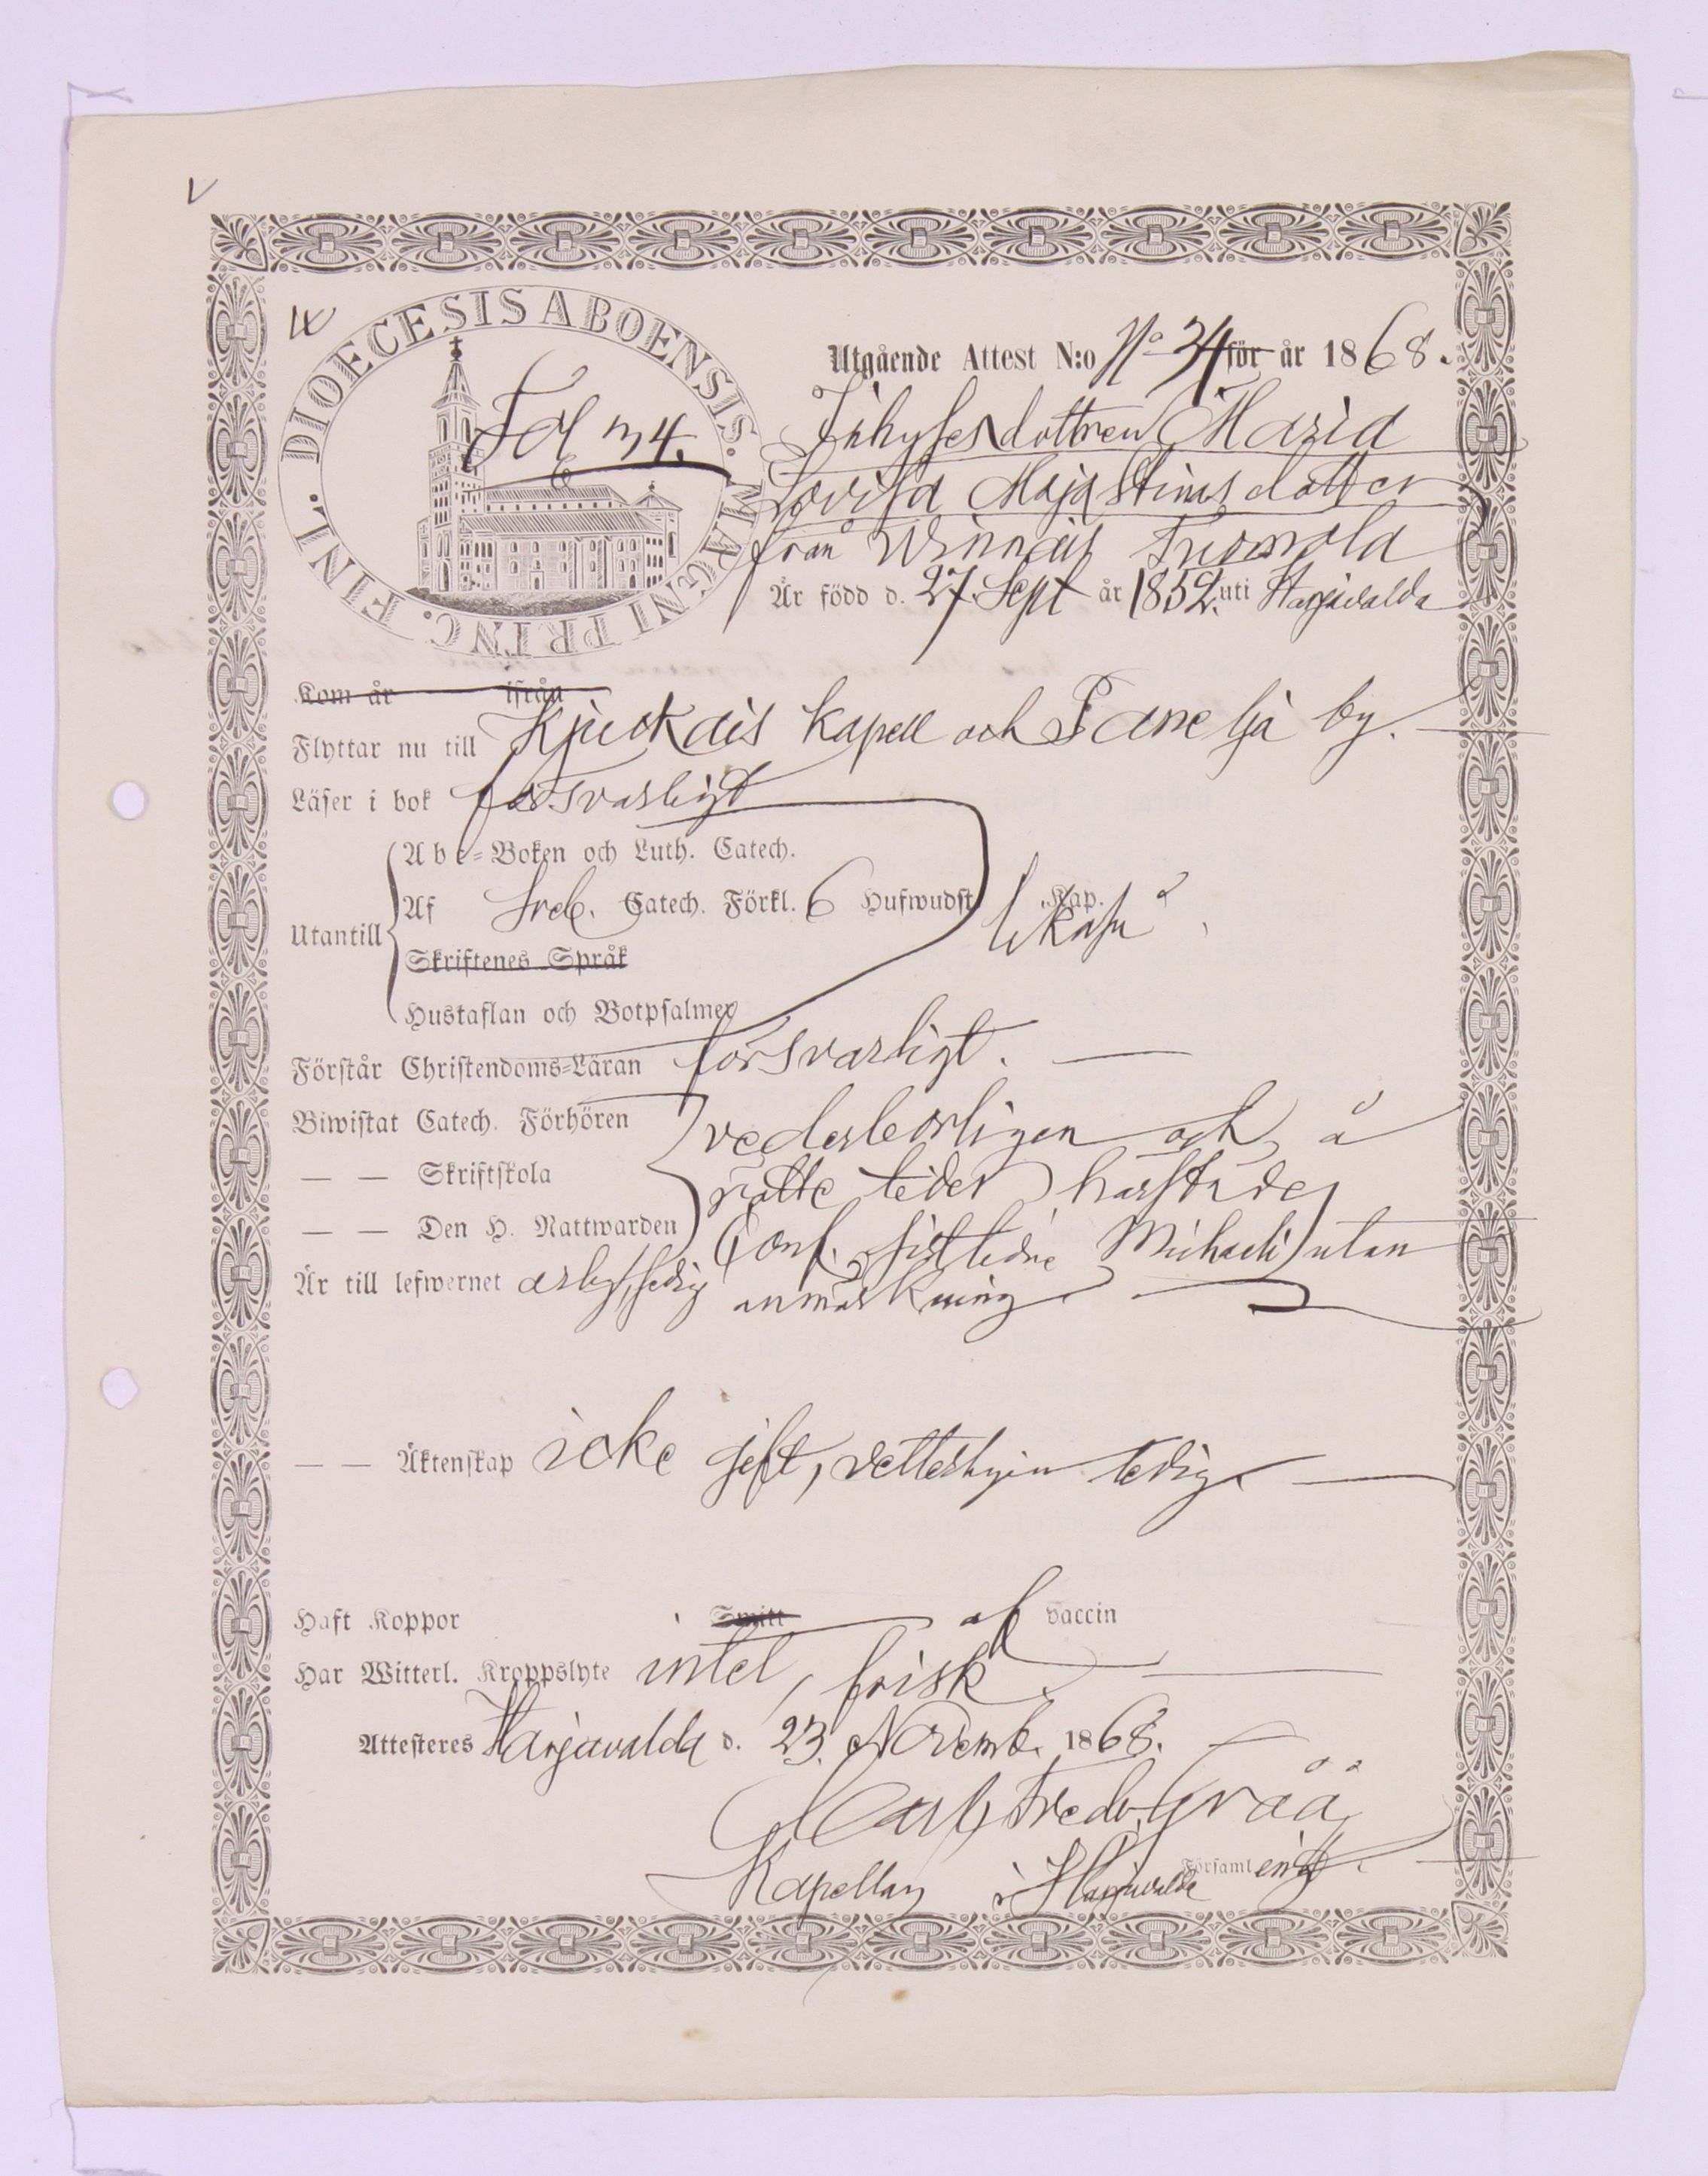 V
DIOECESIS ABOENSIS. MAGNI PRINC. FINL.
Fol 34.
Utgående Attest N:o N:o 34 för år 1868.
Inhyses dottren Maria
Lovisa Maja Stinas dotter
från Winnais
Är född d. 27 Sept år 1852 uti Harjavalda
Kom år ifrån
Flyttar nu till Kjuckais kapell och Panelja by.
Läser i bok försvarligt
Abc-Boken och Luth. Catech.
Af Sveb. Catech. Förkl. 6 Hufwudst. Kap.
Utantill likaså
Skriftenes Språk
Hustaflan och Botpsalmer
Förstår Christendoms-Läran försvarligt.
Biwistat Catech. Förhören vederbörligen och å
— — Skriftskola rätta tider
— — Den H. Nattwarden Conf. sistledne Michaeli utan
Är till lefwernet anmärkning
— — Äktenskap icke gift, ledig.
Haft Koppor Smitt af vaccin
Har Witterl. Kroppslyte intet, frisk
Attesteres Harjavalda d. 23. Novemb. 1868.
Carl Fredr. Gråå
Kapellan i Harjavalda Församl